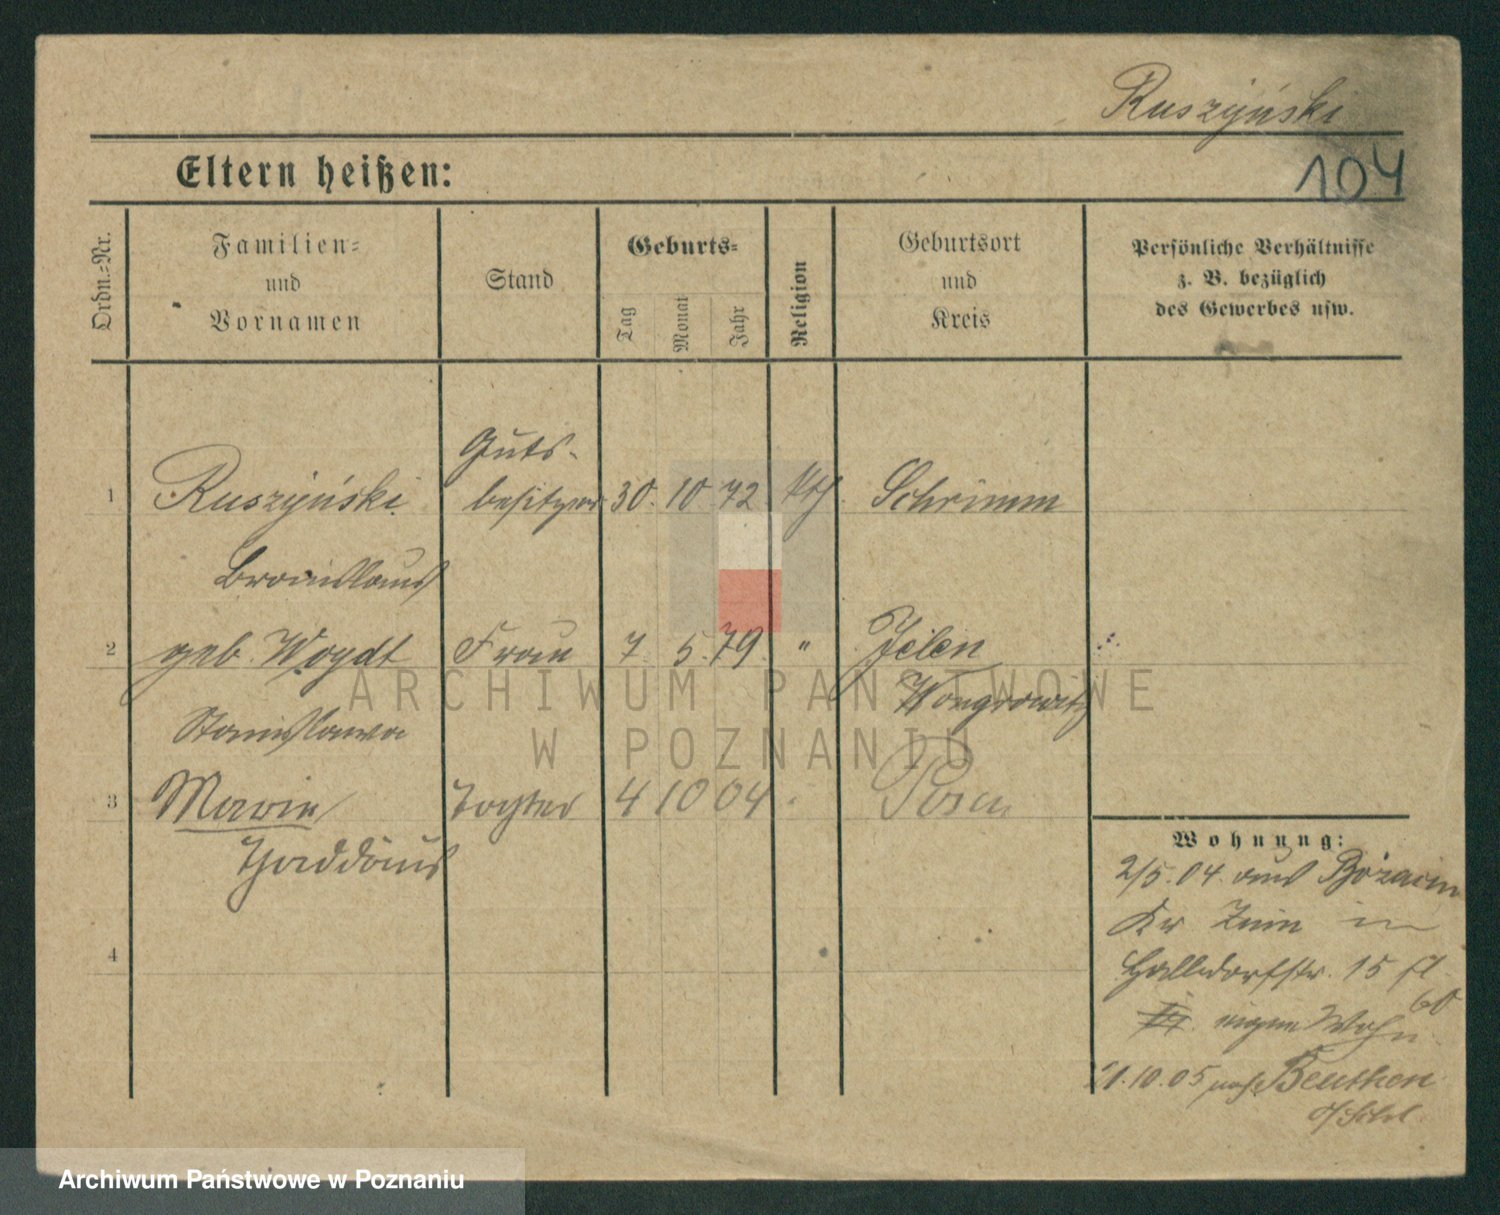 Ruszyński
Eltern heißen:
104
Ordn.-Nr.
Familien-
und
Vornamen
Stand
Geburts-
Tag
Monat
Jahr
Religion
Geburtsort
und
Kreis
Persönliche Verhältnisse
z. B. bezüglich
des Gewerbes usw.
Guts-
1 Ruszyński besitzer 30. 10. 72 kth. Schrimm
Bronislaus
2 geb. Woydt Frau 7. 5. 79. " Jelen
Wongrowitz
Stanislawa
3 Marie Tochter 4 10 04 Posen
Thaddäus
4
Wohnung:
2/5. 04. aus
Kr Znin in
15
eigene Wohn
21.10.05 nach Beuthen
ARCHIWUM PAŃSTWOWE
W POZNANIU
Archiwum Państwowe w Poznaniu